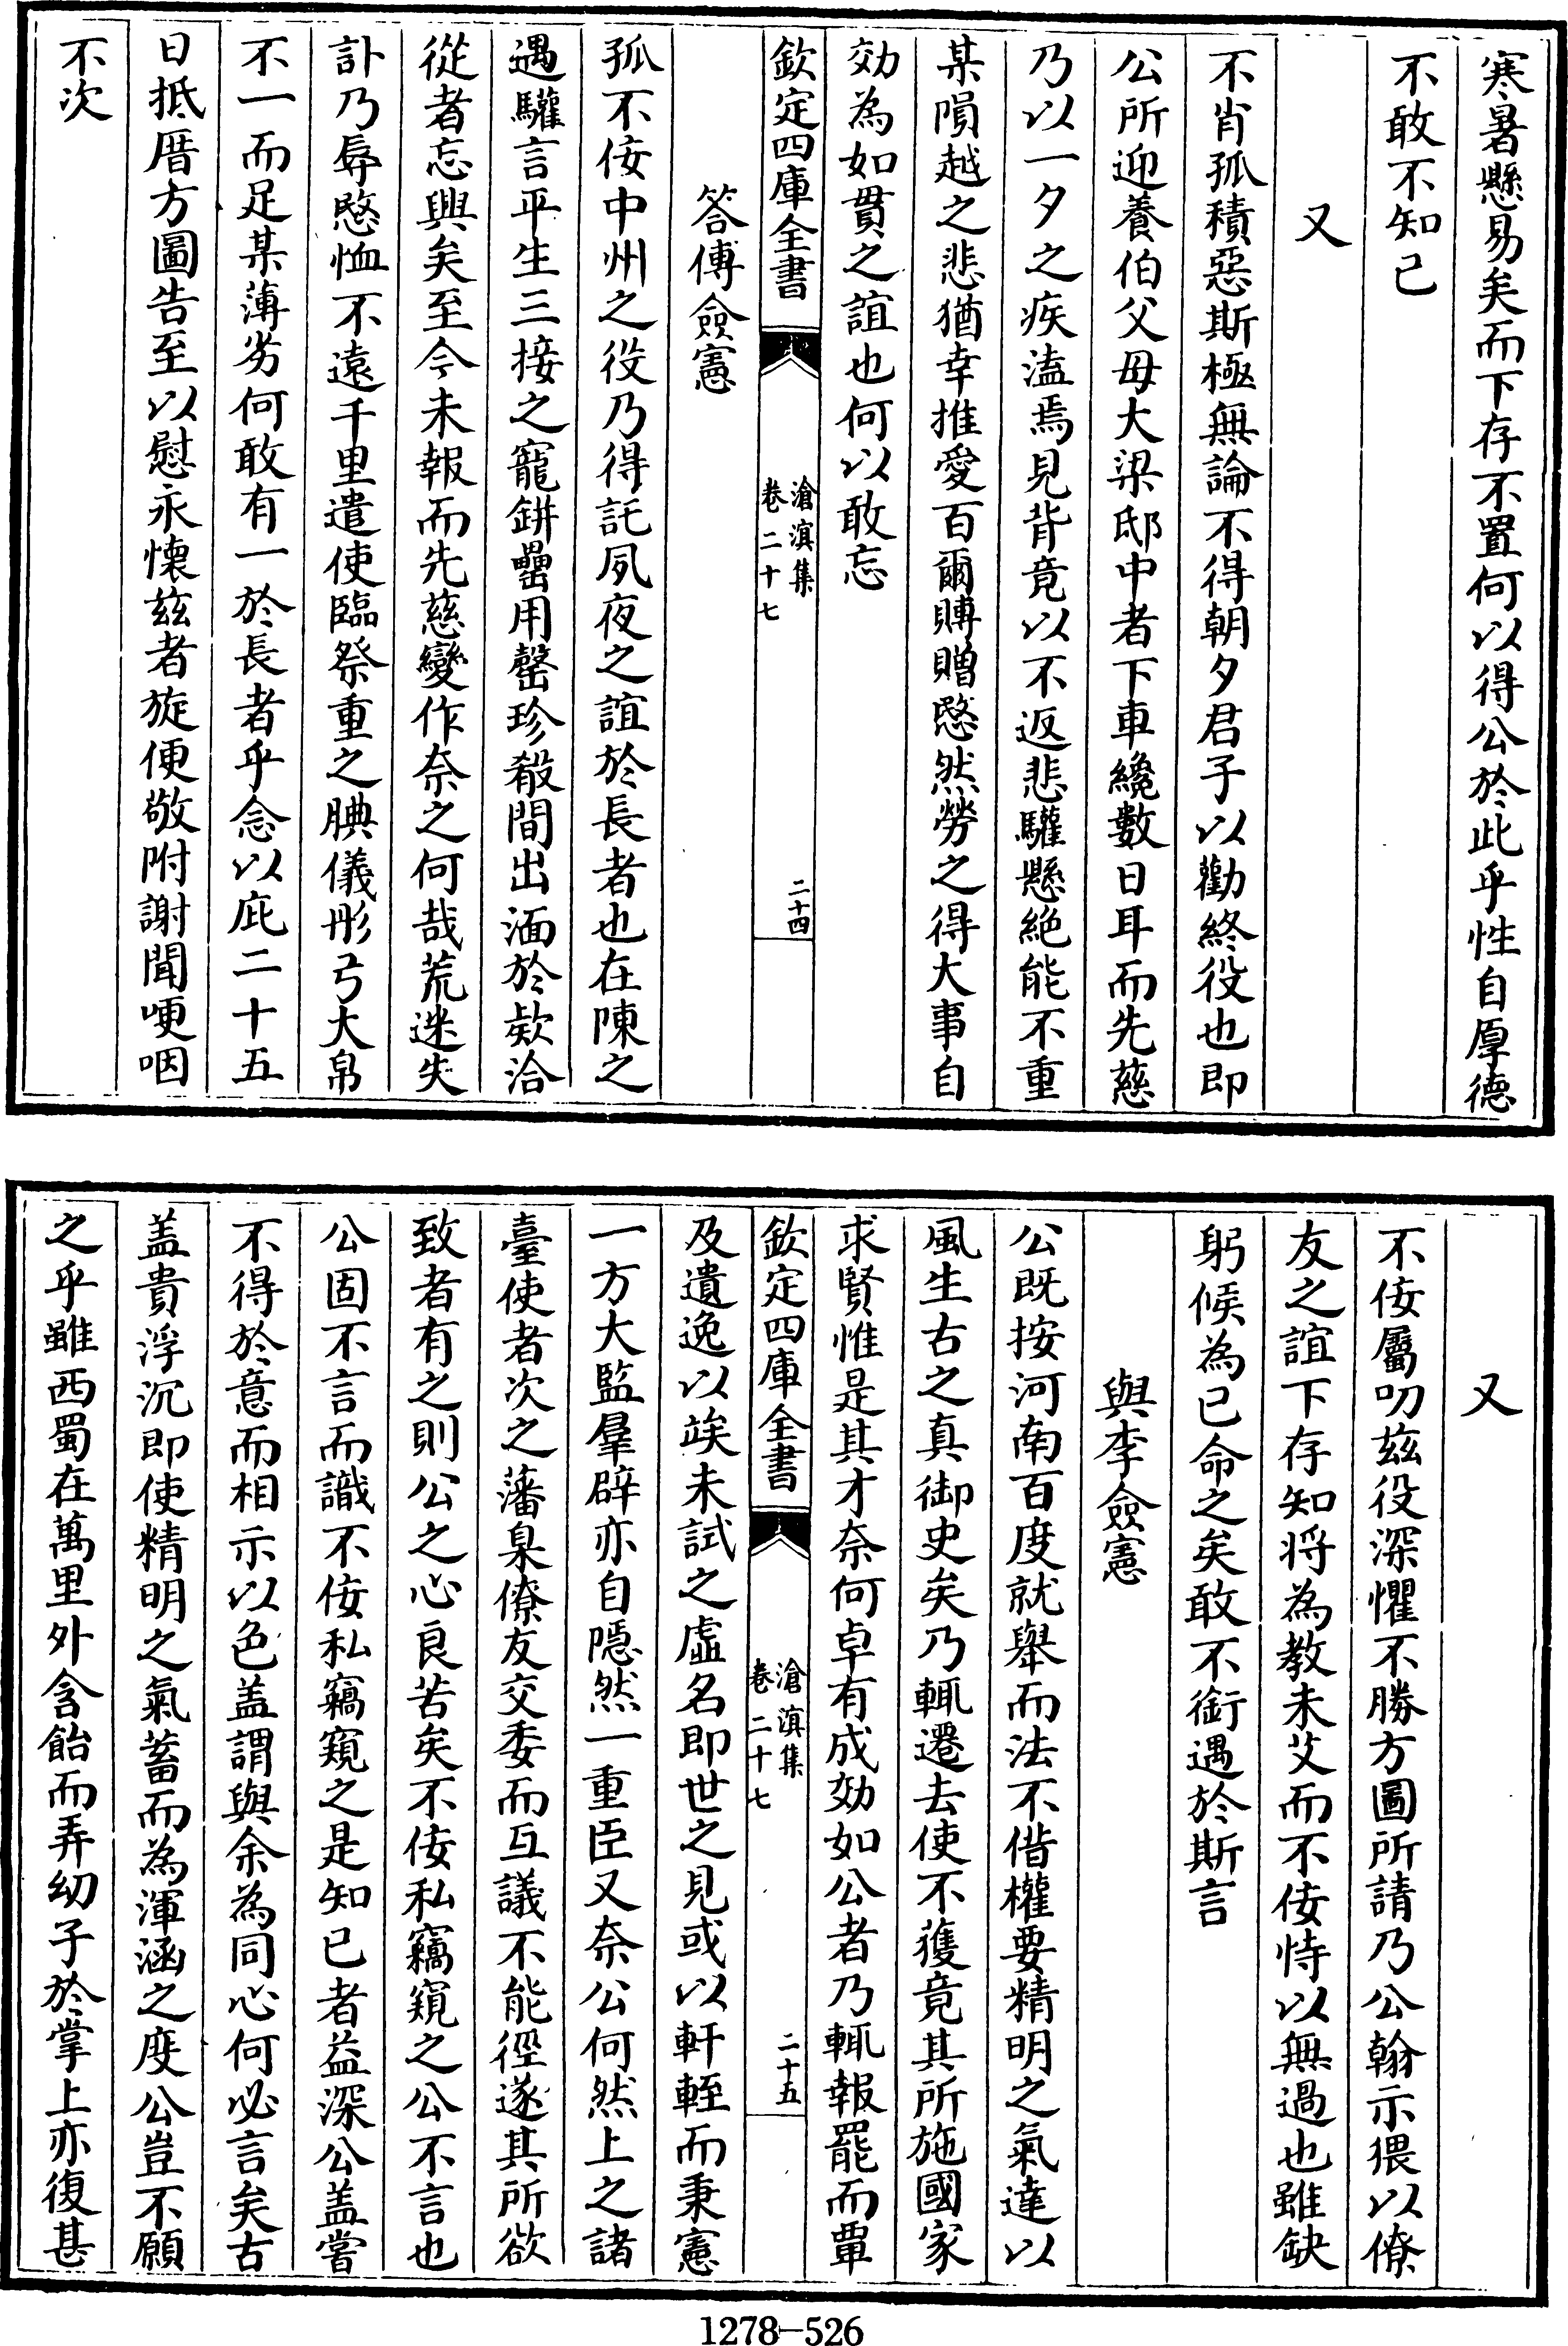 寒暑懸易矣而下存不置何以得公於此乎性自厚德
不敢不知已
又
不肖孤積惡斯極無論不得朝夕君子以勸終役也即
公所迎養伯父母大梁邸中者下車纔數日耳而先慈
乃以一夕之疾溘焉見背竟以不返悲驩懸絶能不重
某隕越之悲猶幸推愛百爾賻贈愍然勞之得大事自
効為如貫之誼也何以敢忘
欽定四庫全書
滄溟集
卷二十七
二十四
答傅僉憲
孤不佞中州之役乃得託夙夜之誼於長者也在陳之
遇驩言平生三接之寵缾罍用罄珍殽間出湎於欵洽
從者忘興矣至今未報而先慈變作奈之何哉荒迷失
訃乃辱愍恤不遠千里遣使臨祭重之腆儀彤弓大帛
不一而足某薄劣何敢有一於長者乎念以庇二十五
日抵厝方圖告至以慰永懷兹者旋便敬附謝聞哽咽
不次
又
不佞屬叨兹役深懼不勝方圖所請乃公翰示猥以僚
友之誼下存知将為教未艾而不佞恃以無過也雖缺
躬候為已命之矣敢不銜遇於斯言
與李僉憲
公既按河南百度就舉而法不偕權要精明之氣達以
風生古之真御史矣乃輒遷去使不獲竟其所施國家
求賢惟是其才奈何卓有成効如公者乃輒報罷而覃
欽定四庫全書
滄溟集
卷二十七
二十五
及遺逸以竢未試之虛名即世之見或以軒輊而秉憲
一方大監羣辟亦自隱然一重臣又奈公何然上之諸
臺使者次之藩臬僚友交委而互議不能徑遂其所欲
致者有之則公之心良苦矣不佞私竊窺之公不言也
公固不言而識不佞私竊窺之是知已者益深公盖嘗
不得於意而相示以色盖謂與余為同心何必言矣古
盖貴浮沉即使精明之氣蓄而為渾涵之度公豈不願
之乎雖西蜀在萬里外含飴而弄幼子於掌上亦復甚
1278-526